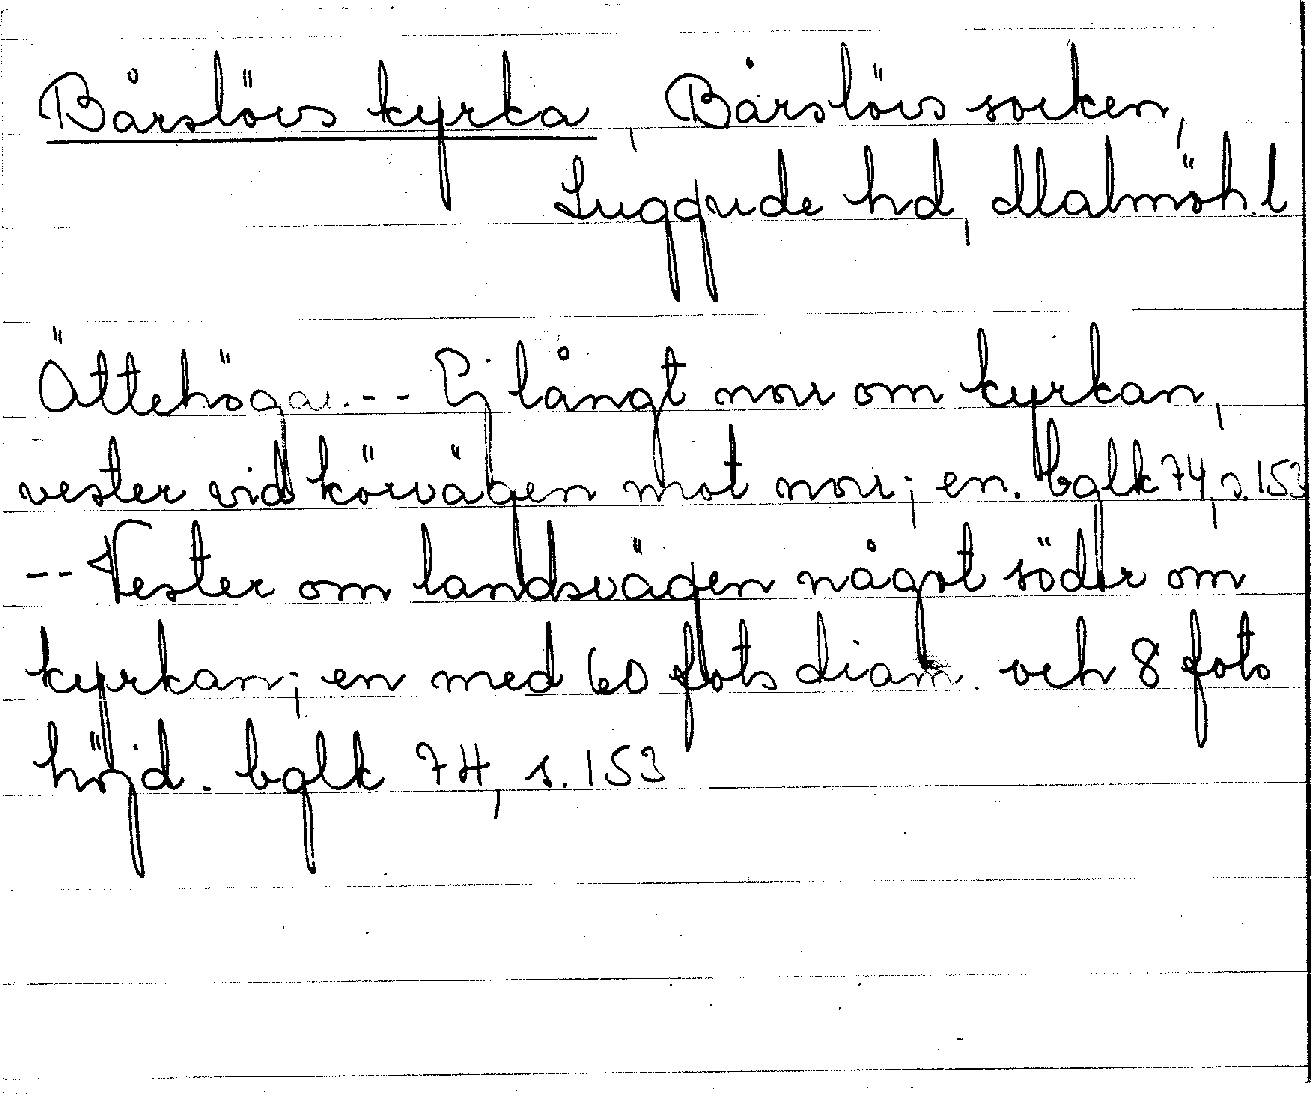 Bårslövs kyrka, Bårslövs socken,
Luggude hd, Malmöh.l
Ättehögar.-- Ej långt norr om kyrkan,
vester vid körvägen mot norr; en. bglk 74, s.153
-- Vester om landsvägen något söder om
kyrkan; en med 60 fots diam. och 8 fots
höjd. bglk 74, s.153